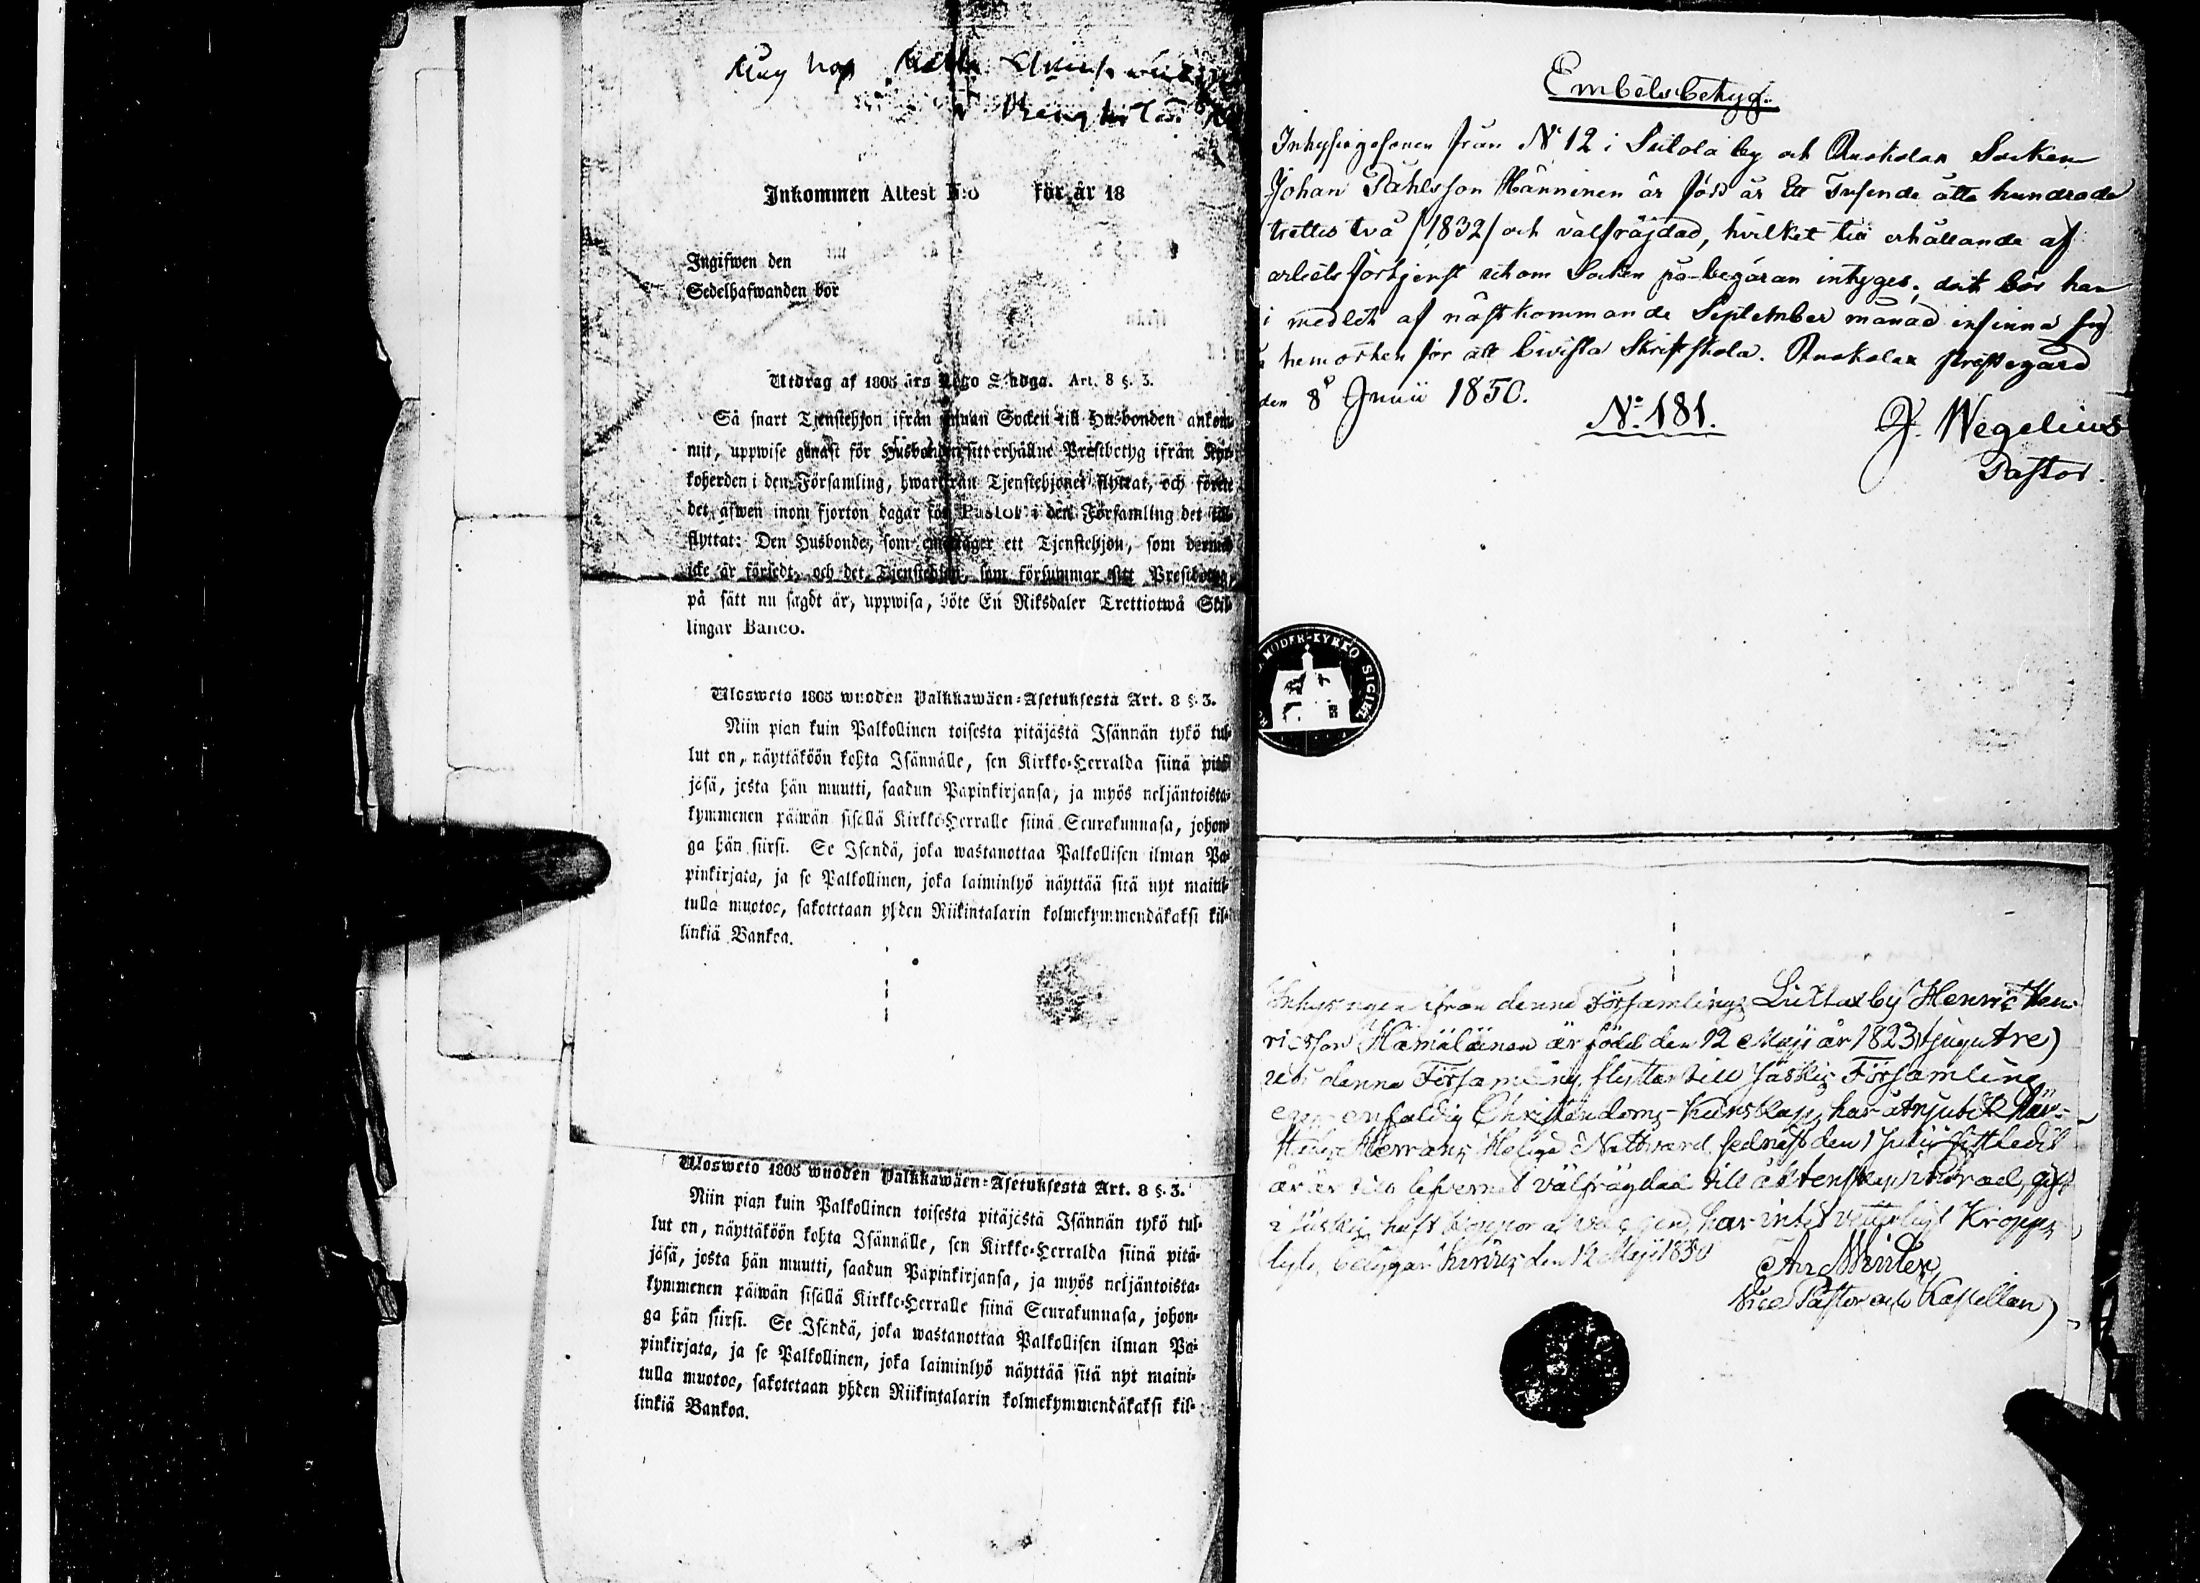 Inkommen Attest N:o för år 18
Ingifwen den
Sedelhafwanden bor
Utdrag af 1805 års Lego Stadga. Art. 8 §. 3.
Så snart Tjenstehjon ifrån annan Socken till Husbonden ankom-
mit, uppwise genast för Husbonden sitt erhållne Prestbetyg ifrån Kyr-
koherden i den Församling, hwarifrån Tjenstehjonet flyttat, och förete
det äfwen inom fjorton dagar för Pastor i den Församling det till-
flyttat: Den Husbonde, som emottager ett Tjenstehjon, som dermed
icke är försedt, och det Tjenstehjon, som försummar sitt Prestbetyg,
på sätt nu sagdt är, uppwisa, böte En Riksdaler Trettiotwå Skil-
lingar Banco.
Ulosweto 1805 wuoden Palkkawäen-Asetuksesta Art. 8 §. 3.
Niin pian kuin Palkollinen toisesta pitäjästä Isännän tykö tul-
lut on, näyttäköön kohta Isännälle, sen Kirkko-Herralda siinä pitä-
jäsä, josta hän muutti, saadun Papinkirjansa, ja myös neljäntoista-
kymmenen päiwän sisällä Kirkko-Herralle siinä Seurakunnasa, johon-
ga hän siirsi. Se Isendä, joka wastanottaa Palkollisen ilman Pa-
pinkirjata, ja se Palkollinen, joka laiminlyö näyttää sitä nyt maini-
tulla muotoa, sakotetaan yhden Riikintalarin kolmekymmendäkaksi kil-
linkiä Bankoa.
Ulosweto 1805 wuoden Palkkawäen-Asetuksesta Art. 8 §. 3.
Niin pian kuin Palkollinen toisesta pitäjästä Isännän tykö tul-
lut on, näyttäköön kohta Isännälle, sen Kirkko-Herralda siinä pitä-
jäsä, josta hän muutti, saadun Papinkirjansa, ja myös neljäntoista-
kymmenen päiwän sisällä Kirkko-Herralle siinä Seurakunnasa, johon-
ga hän siirsi. Se Isendä, joka wastanottaa Palkollisen ilman Pa-
pinkirjata, ja se Palkollinen, joka laiminlyö näyttää sitä nyt maini-
tulla muotoa, sakotetaan yhden Riikintalarin kolmekymmendäkaksi kil-
linkiä Bankoa.
Embetsbetyg.
Inhysingesonen från N:o 12 i Suitola by och Ruokolax Socken
Johan Påhlsson Hänninen är född år Ett Tusende åtta hundrade
trettio två /1832/ och välfräjdad, hvilket till erhållande af
arbetsförtjenst utom Socken på begäran intyges; dock bör han
i medlet af nästkommande September månad infinna sig
i hemorten för att bivista Skriftskola. Ruokolax prestegård
den 8 Junii 1850.
N:o 181.
J. Wegelius
Pastor.
MODER-KYRKO SIGILL
Inhysingen ifrån denna Församlings by Henric Hen-
ricsson Hämäläinen är född den 12 Maji år 1823 (tjugutre)
denna Församling, flyttar till Jäskis Församling
enfaldig Christendoms-kunskap, har åtnjutit
Herrans Heliga Nattvard sednast den 1 Julii sistledit
år, är till lefvernet välfrägdad till äktenskap gift
i Jäskis, haft koppor har intet Kropps
lyte, betygar den 12 Maji 1850
Winter
Vice Pastor och Kapellan